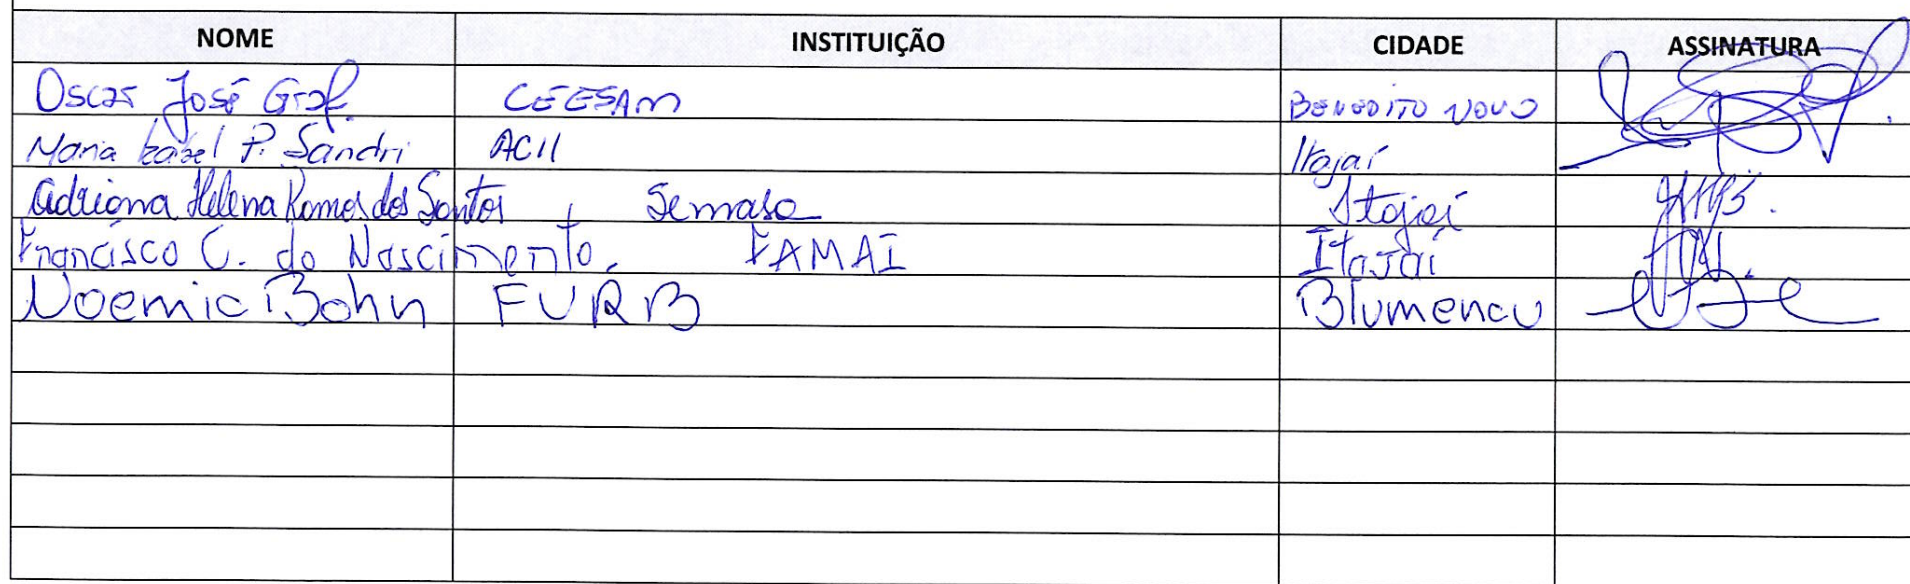 NOME INSTITUIÇÃO CIDADE ASSINATURA
Oscar José Graf. CEESAM BENEDITO NOVO
Maria Izabel P. Sandri ACII Itajaí
Adriana Helena Ramos dos Santos, Semasa Itajaí
Francisco C. do Nascimento. FAMAI ITAJAÍ
Noemia Bohn FURB Blumenau